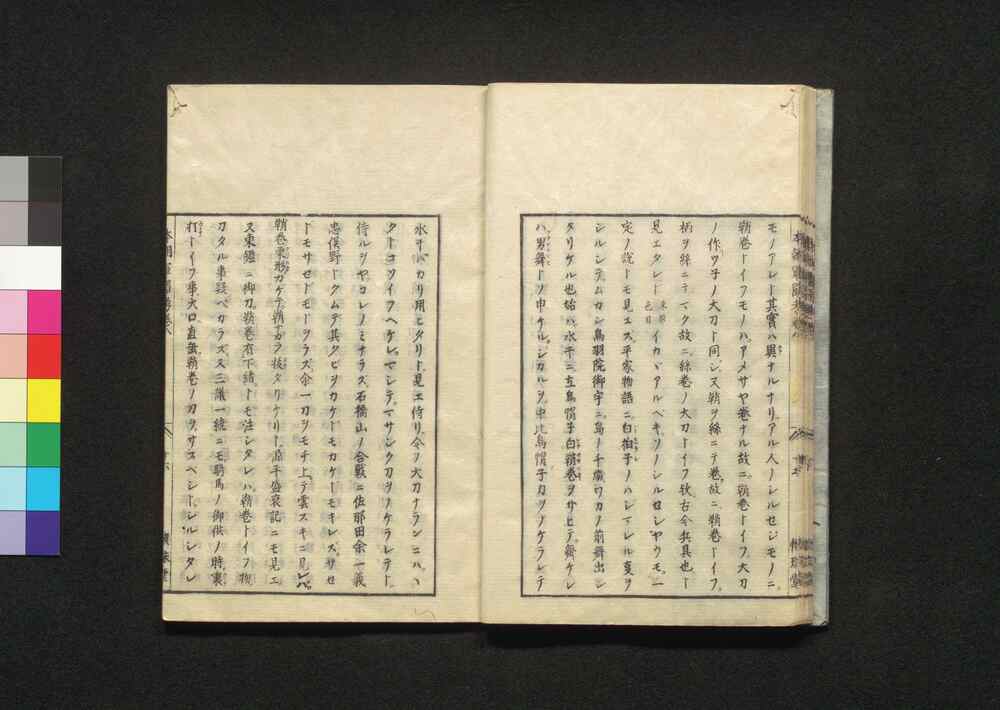 モノアレド其實ハ異ナルナリアル人ノシルセシモノニ
鞘巻トイフモノハアメサヤ巻ナル故ニ鞘巻トイフ大刀
ノ作ツ子ノ大刀ト同シ又鞘ヲ絲ニテ巻故ニ鞘巻トイフ
柄ヲ絲ニテマク故ニ絲巻ノ大刀トイフ歟古今兵具也ト
見エタレド
イカヾアルベキソノシルセシヤウモ一
定ノ説トモ見エズ平家物語ニ白拍子ノハシマレル事ヲ
シルシテムカシ鳥羽院御宇ニ島ノ千歳ワカノ前舞出シ
タリケル也始ハ水干ニ立烏帽子白鞘巻ヲサヒテ舞ケレ
ハ男舞トソ申ケルシカルヲ中比烏帽子カタノケラレテ
水干バカリ用ヒタリト見エ侍リ今ノ大刀ナランニハ
侍ルシヤコレノミナラス石橋山ノ合戰ニ佐那田余一義
忠俣野トクムテ其クビヲカケドモカケドモキレズサセ
ドモサセドモトヲラズ余一刀ヲモチ上テ雲スキニ見レバ
鞘巻栗形カケテ鞘ナガラ抜タリケリト源平盛衰記ニモ見エ
又東鑑ニ御刀鞘巻有下緒トモ注シタレハ鞘巻トイフ物
刀タル事疑ベカラズ又三議一統ニモ騎馬ノ御供ノ時裏
打トイフ事大口直垂鞘巻ノ刀ヲサスベシトシルシタレ